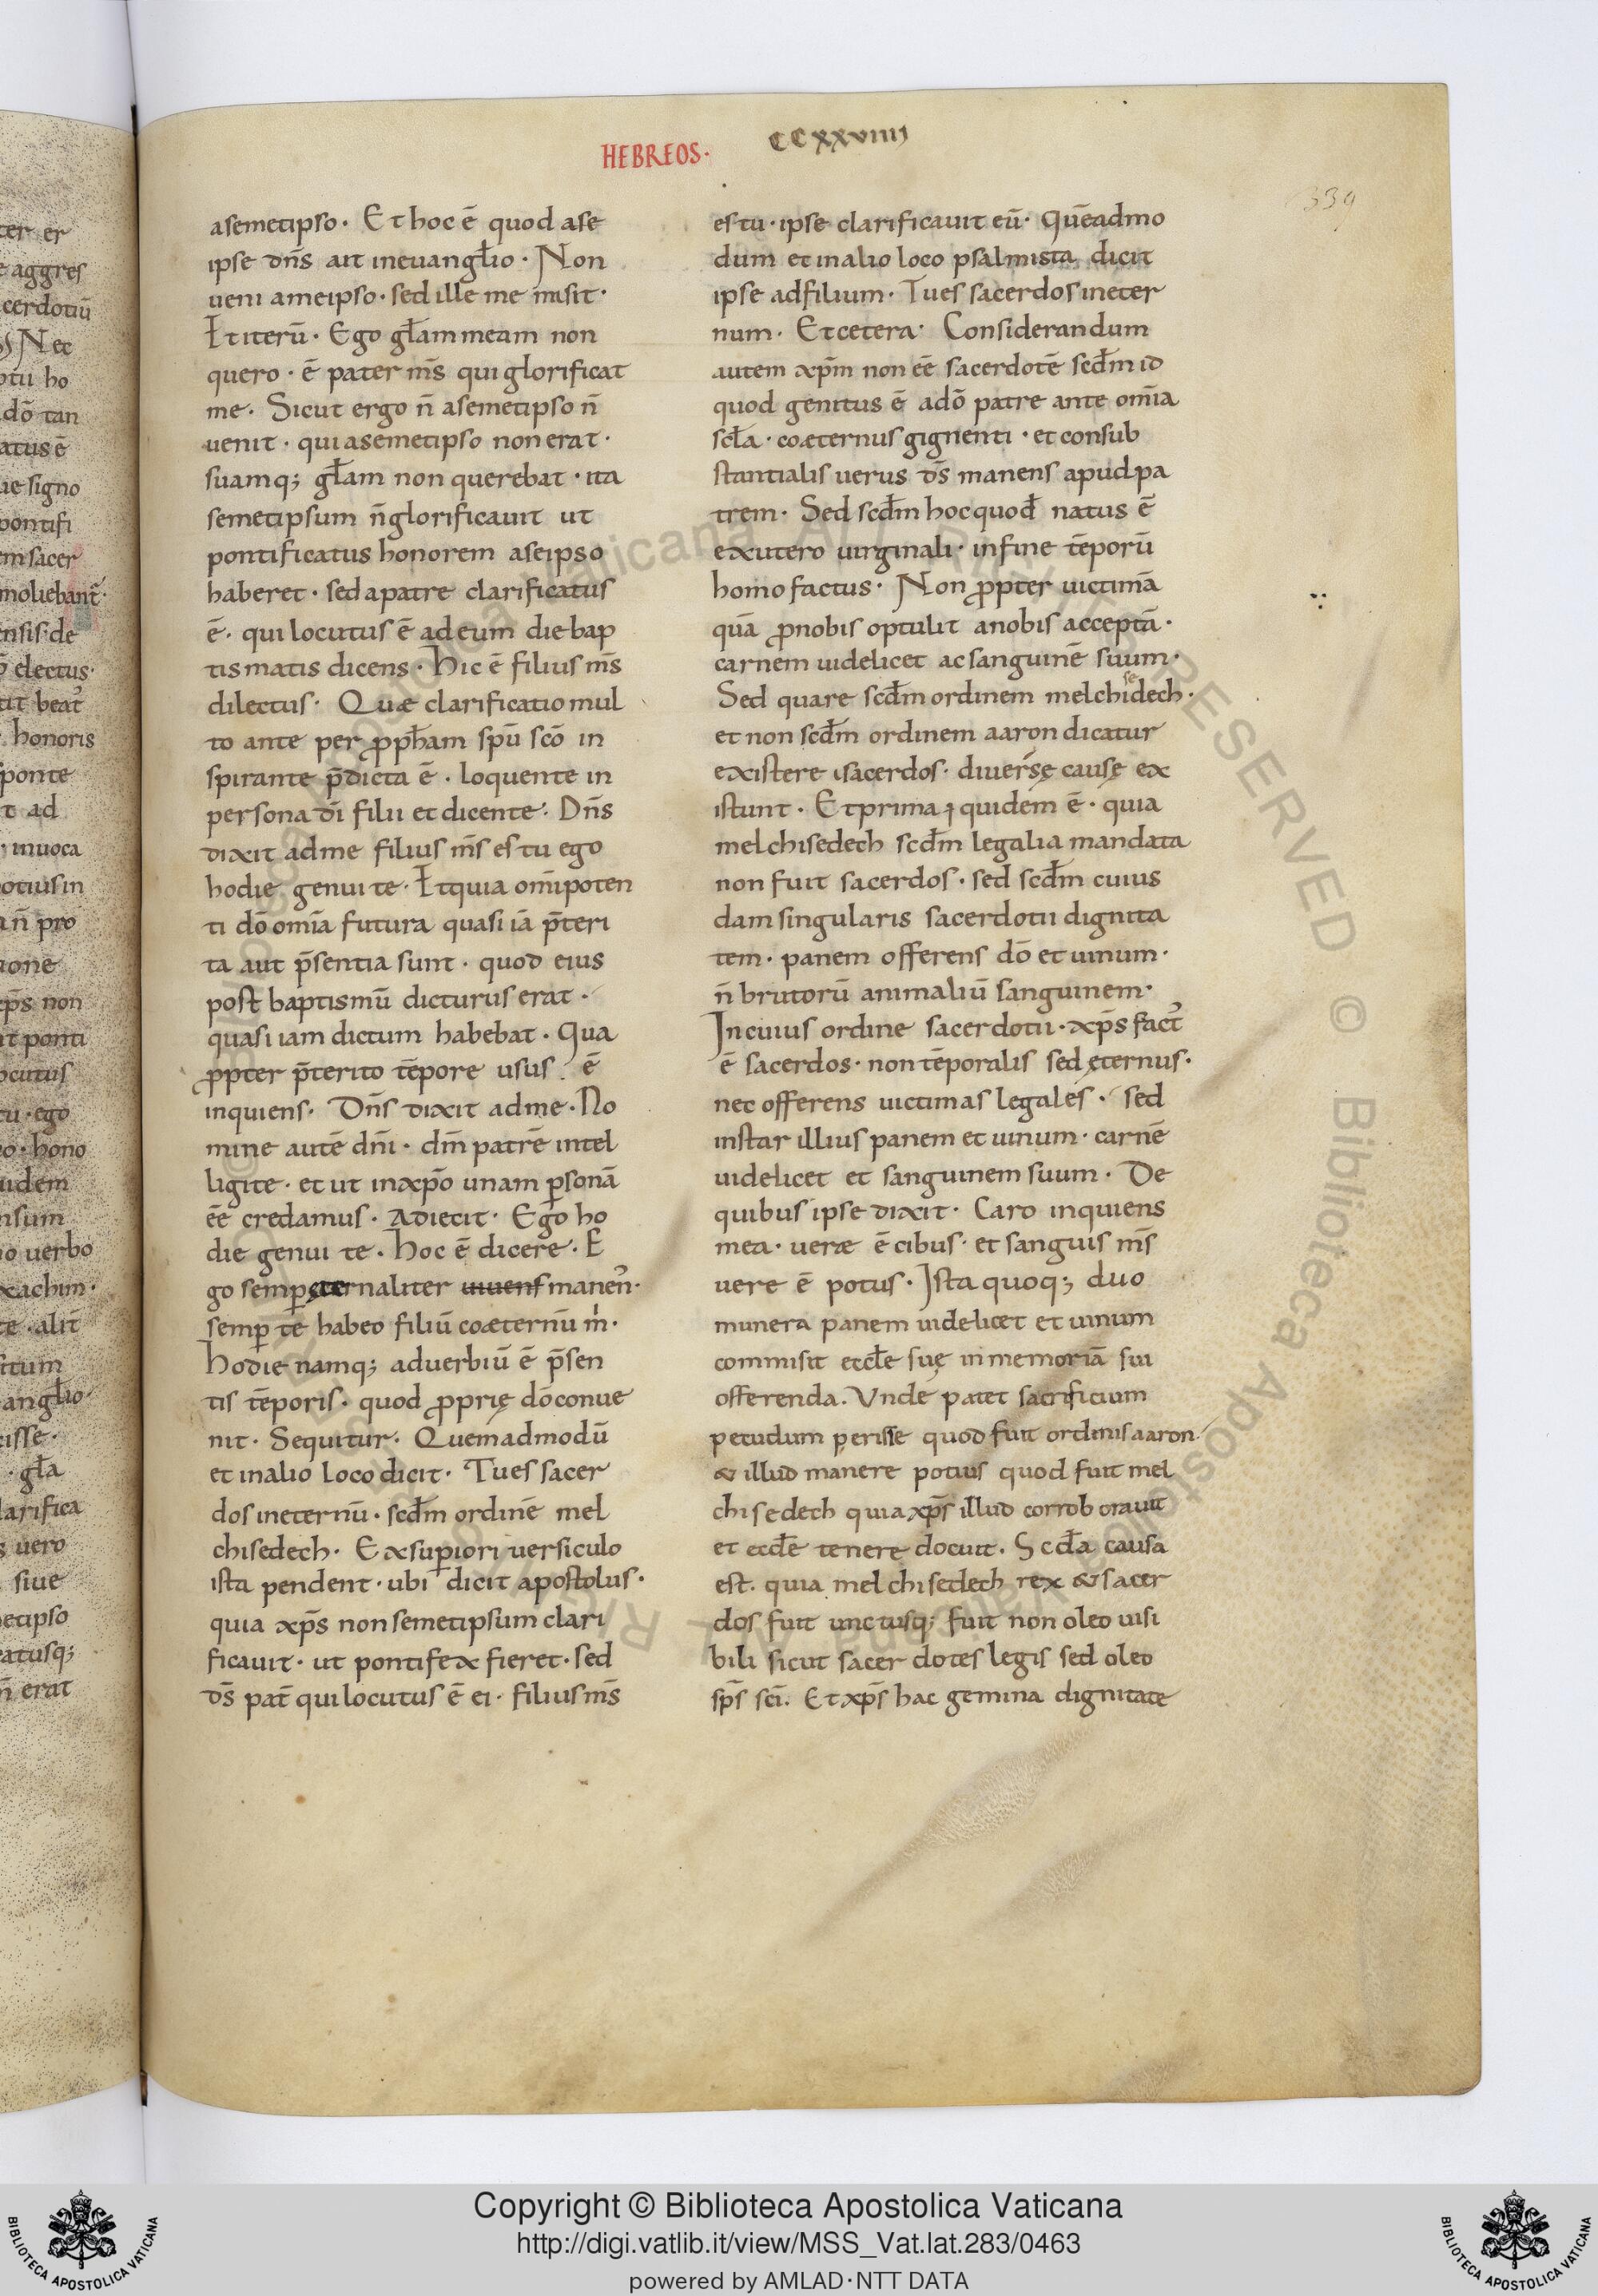 HEBREOS·
CCXXVIIII
339
asemetipso· Et hoc ē quod ase
ipse dn̄s ait ineuangl̄io· Non
ueni ameipso· sed ille me misit·
Et iterū· Ego gl̄am meam non
quero· ē pater m̄s qui glorificat
me· Sicut ergo n̄ asemetipso n̄
uenit· qui asemetipso non erat·
suamq; gl̄am non querebat· ita
semetipsum n̄ glorificauit ut
pontificatus honorem aseipso
haberet· sed apatre clarificatus
ē· qui locutus ē ad eum die bap
tismatis dicens· Hic ē filius m̄s
dilectus· Quæ clarificatio mul
to ante per ꝓph̄am spū scō in
spirante p̄dicta ē· loquente in
persona dī filii et dicente· Dn̄s
dixit adme filius m̄s es tu ego
hodie genui te· Et quia om̄ipoten
ti dō om̄ia futura quasi iā p̄teri
ta aut p̄sentia sunt· quod eius
post baptismū dicturus erat·
quasi iam dictum habebat· Qua
ꝓpter p̄terito tēpore usus ē
inquiens· Dn̄s dixit adme· No
mine autē dn̄i· dm̄ patrē intel
ligite· et ut inxp̄o unam ꝑsonā
ēē credamus· Adiecit· Ego ho
die genui te· hoc ē dicere· E
go semꝑ ęternaliter uiuens manen̄·
semꝑ te habeo filiū coæternū m·
hodie namq; aduerbiū ē p̄sen
tis tēporis· quod ꝓprię dō conue
nit· Sequitur· Quemadmodū
et inalio loco dicit· Tu es sacer
dos ineternū· scdm̄ ordinē mel
chisedech· Ex suꝑiori uersiculo
ista pendent· ubi dicit apostolus·
quia xp̄s non semetipsum clari
ficauit· ut pontifex fieret· sed
ds̄ pat̄ qui locutus ē ei· filius m̄s
es tu· ipse clarificauit eū· Quēadmo
dum et inalio loco psalmista dicit
ipse adfilium· Tu es sacerdos ineter
num· Et cetera· Considerandum
autem xp̄m non ēē sacerdotē scdm̄ id
quod genitus ē adō patre ante om̄ia
scl̄a· coæternus gignenti· et consub
stantialis uerus ds̄ manens apud pa
trem· Sed scdm̄ hoc quod natus ē
exutero uirginali· infine tēporū
homo factus· Non ꝓpter uictimā
quā ꝓnobis optulit anobis acceptā·
carnem uidelicet ac sanguinē suum·
Sed quare scdm̄ ordinem melchisedech·
et non scdm̄ ordinem aaron dicatur
existere sacerdos· diuersę causę ex
istunt· Et prima quidem ē· quia
melchisedech scdm̄ legalia mandata
non fuit sacerdos· sed scdm̄ cuius
dam singularis sacerdotii dignita
tem· panem offerens dō et uinum·
n̄ brutorū animaliū sanguinem·
In cuius ordine sacerdotii· xp̄s fact᾽
ē sacerdos· non tēporalis sed ęternus·
nec offerens uictimas legales· sed
instar illius panem et uinum· carnē
uidelicet et sanguinem suum· De
quibus ipse dixit· Caro inquiens
mea· ueræ ē cibus· et sanguis m̄s
uere ē potus· Ista quoq; duo
munera panem uidelicet et uinum
commisit eccl̄e suę in memoriā sui
offerenda. Vnde patet sacrificium
pecudum perisse quod fuit ordinis aaron·
& illud manere potius quod fuit mel
chisedech quia xp̄s illud corroborauit
et eccl̄e tenere docuit. Scd̄a causa
est. quia melchisedech rex & sacer
dos fuit unctusq; fuit non oleo uisi
bili sicut sacerdotes legis sed oleo
sp̄s scī. Et xp̄s hac gemina dignitate
Copyright © Biblioteca Apostolica Vaticana
http://digi.vatlib.it/view/MSS_Vat.lat.283/0463
powered by AMLAD·NTT DATA